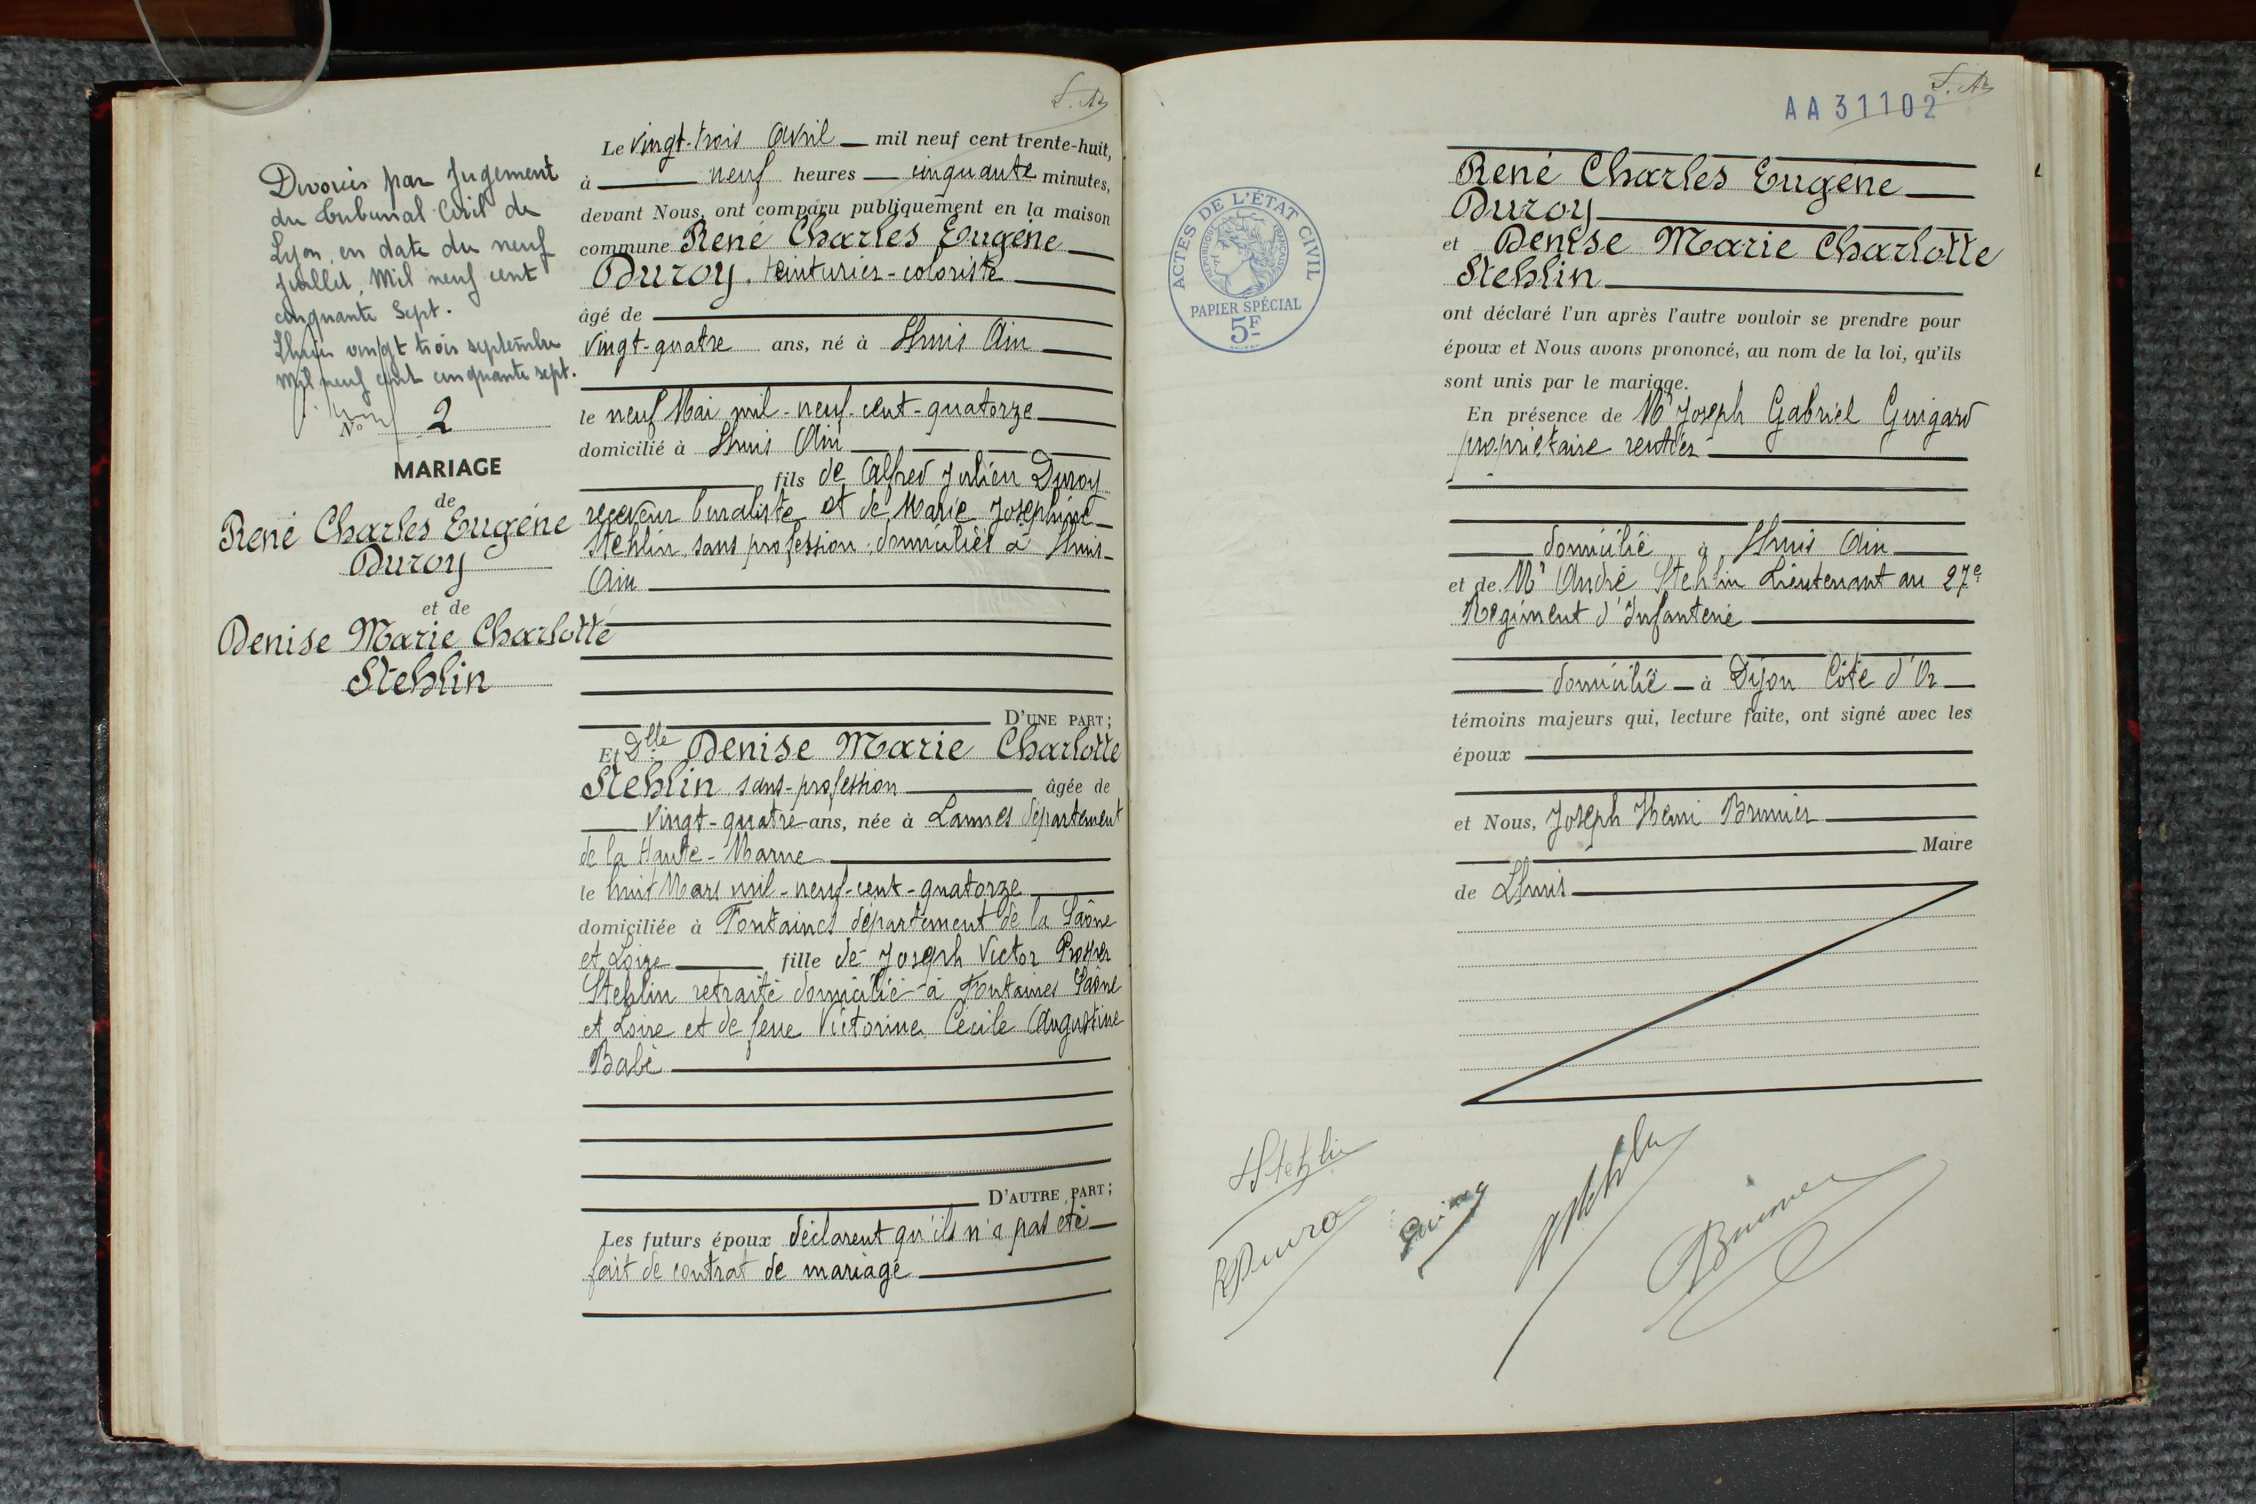 Divorcés par jugement
du tribunal Civil de
Lyon, en date du neuf
juillet, Mil neuf cent
cinquante Sept.
Lhuis vingt trois septembre
Mil neuf cent cinquante sept.
No 2
MARIAGE
de
René Charles Eugène
Duroy
et de
Denise Marie Charlotte
Stehlin
Le vingt-trois Avril mil neuf cent trente-huit,
à neuf heures cinquante minutes,
devant Nous, ont comparu publiquement en la maison
commune René Charles Eugène
Duroy. teinturier-coloriste
âgé de
vingt-quatre ans, né à Lhuis Ain
le neuf Mai mil-neuf-cent-quatorze
domicilié à Lhuis Ain
fils de Alfred Julien Duroy
receveur buraliste et de Marie Joséphine
Stehlin, sans profession domiciliés à Lhuis
Ain
D'UNE PART;
Et Dlle Denise Marie Charlotte
Stehlin sans-profession âgée de
vingt-quatre ans, née à Lannes département
de la Haute-Marne
le huit Mars mil-neuf-cent-quatorze
domiciliée à Fontaines département de la Saône
et Loire fille de Joseph Victor Prosper
Stehlin retraité domicilié à Fontaines Saône
et Loire et de feue Victorine Cécile Augustine
Babé
D'AUTRE PART;
Les futurs époux déclarent qu'ils n'a pas été
fait de contrat de mariage
AA 31102
ACTES DE L'ÉTAT CIVIL
RÉPUBLIQUE FRANÇAISE
PAPIER SPÉCIAL
5F
René Charles Eugène
Duroy
et Denise Marie Charlotte
Stehlin
ont déclaré l'un après l'autre vouloir se prendre pour
époux et Nous avons prononcé, au nom de la loi, qu'ils
sont unis par le mariage.
En présence de Mr Joseph Gabriel Guigard
propriétaire rentier
domicilié à Lhuis Ain
et de Mr André Stehlin Lieutenant au 27e
Régiment d'Infanterie
domicilié à Dijon Côte d'Or
témoins majeurs qui, lecture faite, ont signé avec les
époux
et Nous, Joseph Henri Brunier
Maire
de Lhuis
DStehlin
RDuroy
Stehlin
Brunier